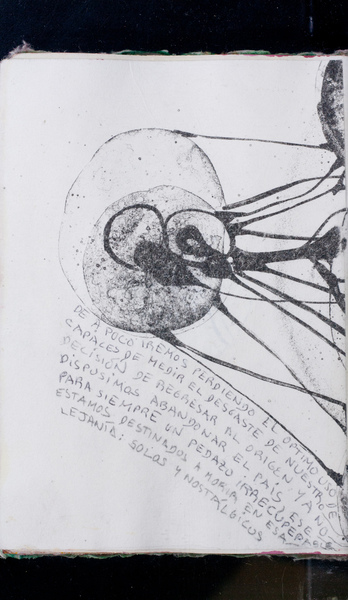 DE A POCO IREMOS PERDIENDO EL ÓPTIMO USO DE
CAPACES DE MEDIR EL DESGASTE DE NUESTRO
DECISIÓN DE REGRESAR AL ORIGEN Y A NO
DISPUSIMOS ABANDONAR EL PAÍS ESE
PARA SIEMPRE UN PEDAZO
ESTAMOS DESTINADOS A MORIR EN ESA
LEJANÍA: SOLOS Y NOSTÁLGICOS